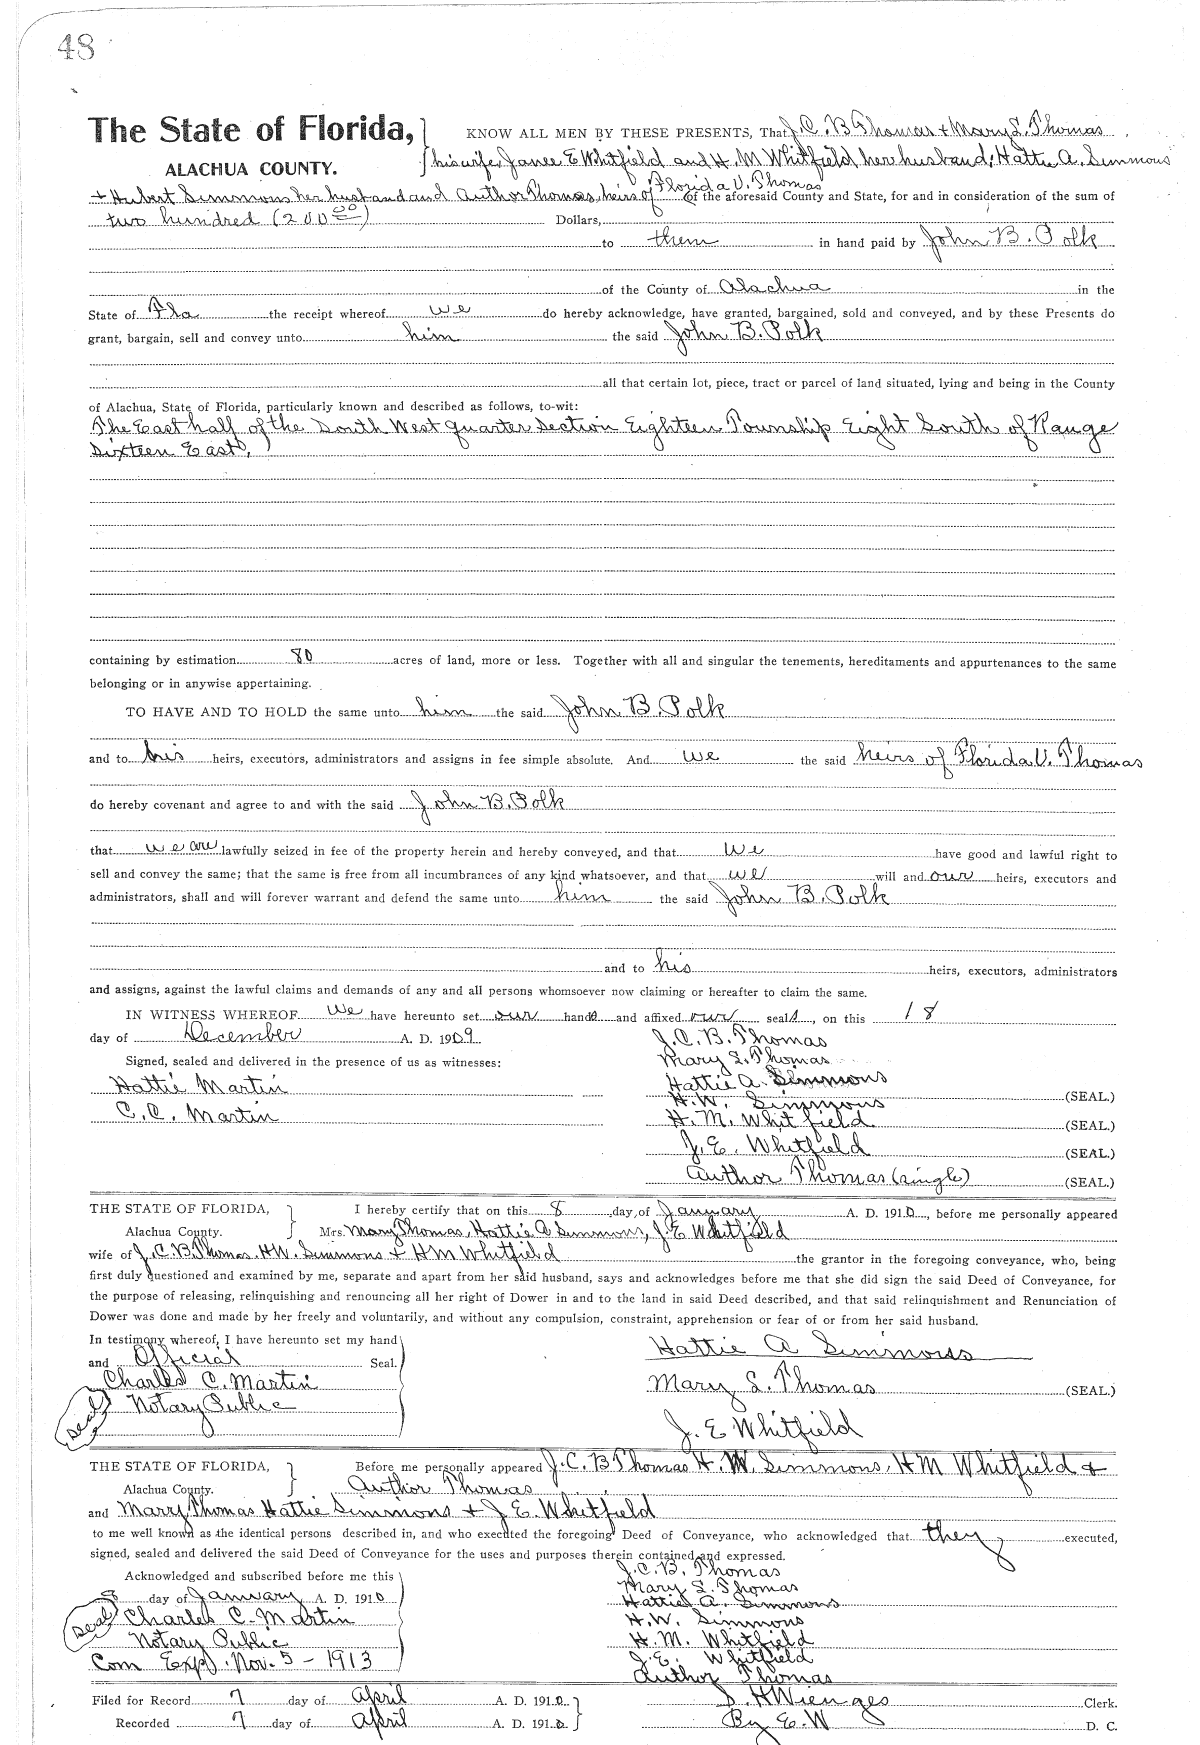 48
The State of Florida, KNOW ALL MEN BY THESE PRESENTS, That J. C. B Thomas + Mary L. Thomas
ALACHUA COUNTY. his wife, Janee E Whitfield and H. M Whitfield her husband; Hattie A. Simmons
+ Hubert Simmons her husband and Author Thomas, heirs of Florida V. Thomas of the aforesaid County and State, for and in consideration of the sum of
two hundred (200 00) Dollars,
to them in hand paid by John B. Polk
of the County of Alachua in the
State of Fla the receipt whereof we do hereby acknowledge, have granted, bargained, sold and conveyed, and by these Presents do
grant, bargain, sell and convey unto him the said John B. Polk
all that certain lot, piece, tract or parcel of land situated, lying and being in the County
of Alachua, State of Florida, particularly known and described as follows, to-wit:
The East half of the South West quarter Section Eighteen Township Eight South of Range
Sixteen East,
containing by estimation 80 acres of land, more or less. Together with all and singular the tenements, hereditaments and appurtenances to the same
belonging or in anywise appertaining.
TO HAVE AND TO HOLD the same unto him the said John B. Polk
and to his heirs, executors, administrators and assigns in fee simple absolute. And we the said heirs of Florida V. Thomas
do hereby covenant and agree to and with the said John B. Polk
that we are lawfully seized in fee of the property herein and hereby conveyed, and that we have good and lawful right to
sell and convey the same; that the same is free from all incumbrances of any kind whatsoever, and that we will and our heirs, executors and
administrators, shall and will forever warrant and defend the same unto him the said John B. Polk
and to his heirs, executors, administrators
and assigns, against the lawful claims and demands of any and all persons whomsoever now claiming or hereafter to claim the same.
IN WITNESS WHEREOF we have hereunto set our hands and affixed our seals, on this 18
day of December A. D. 1909. J. C. B. Thomas
Signed, sealed and delivered in the presence of us as witnesses: Mary L. Thomas
Hattie Martin Hattie A. Simmons
H. W. Simmons (SEAL.)
C. C. Martin H. M. Whitfield (SEAL.)
J. E. Whitfield (SEAL.)
Author Thomas (single) (SEAL.)
THE STATE OF FLORIDA, I hereby certify that on this 8 day of January A. D. 1910, before me personally appeared
Alachua County. Mrs. Mary Thomas, Hattie A Simmons, J. E Whitfield
wife of J. C B Thomas, HW. Simmons + HM Whitfield the grantor in the foregoing conveyance, who, being
first duly questioned and examined by me, separate and apart from her said husband, says and acknowledges before me that she did sign the said Deed of Conveyance, for
the purpose of releasing, relinquishing and renouncing all her right of Dower in and to the land in said Deed described, and that said relinquishment and Renunciation of
Dower was done and made by her freely and voluntarily, and without any compulsion, constraint, apprehension or fear of or from her said husband.
In testimony whereof, I have hereunto set my hand Hattie A Simmons
and Official Seal.
Charles C. Martin Mary L. Thomas (SEAL.)
seal Notary Public
J. E Whitfield
THE STATE OF FLORIDA, Before me personally appeared J. C. B Thomas H. W. Simmons, HM Whitfield +
Alachua County. Author Thomas
and Mary Thomas Hattie Simmons + J E. Whitfield
to me well known as the identical persons described in, and who executed the foregoing Deed of Conveyance, who acknowledged that they executed,
signed, sealed and delivered the said Deed of Conveyance for the uses and purposes therein contained and expressed.
Acknowledged and subscribed before me this J. C. B. Thomas
8 day of January A. D. 1910 Mary L. Thomas
Hattie A. Simmons
seal Charles C. Martin H. W. Simmons
Notary Public H. M. Whitfield
Com Exp. Nov. 5 - 1913 J. E. Whitfield
Author Thomas
Filed for Record 7 day of April A. D. 1910 S. H Wienges Clerk.
Recorded 7 day of April A. D. 1910 By E. W D. C.